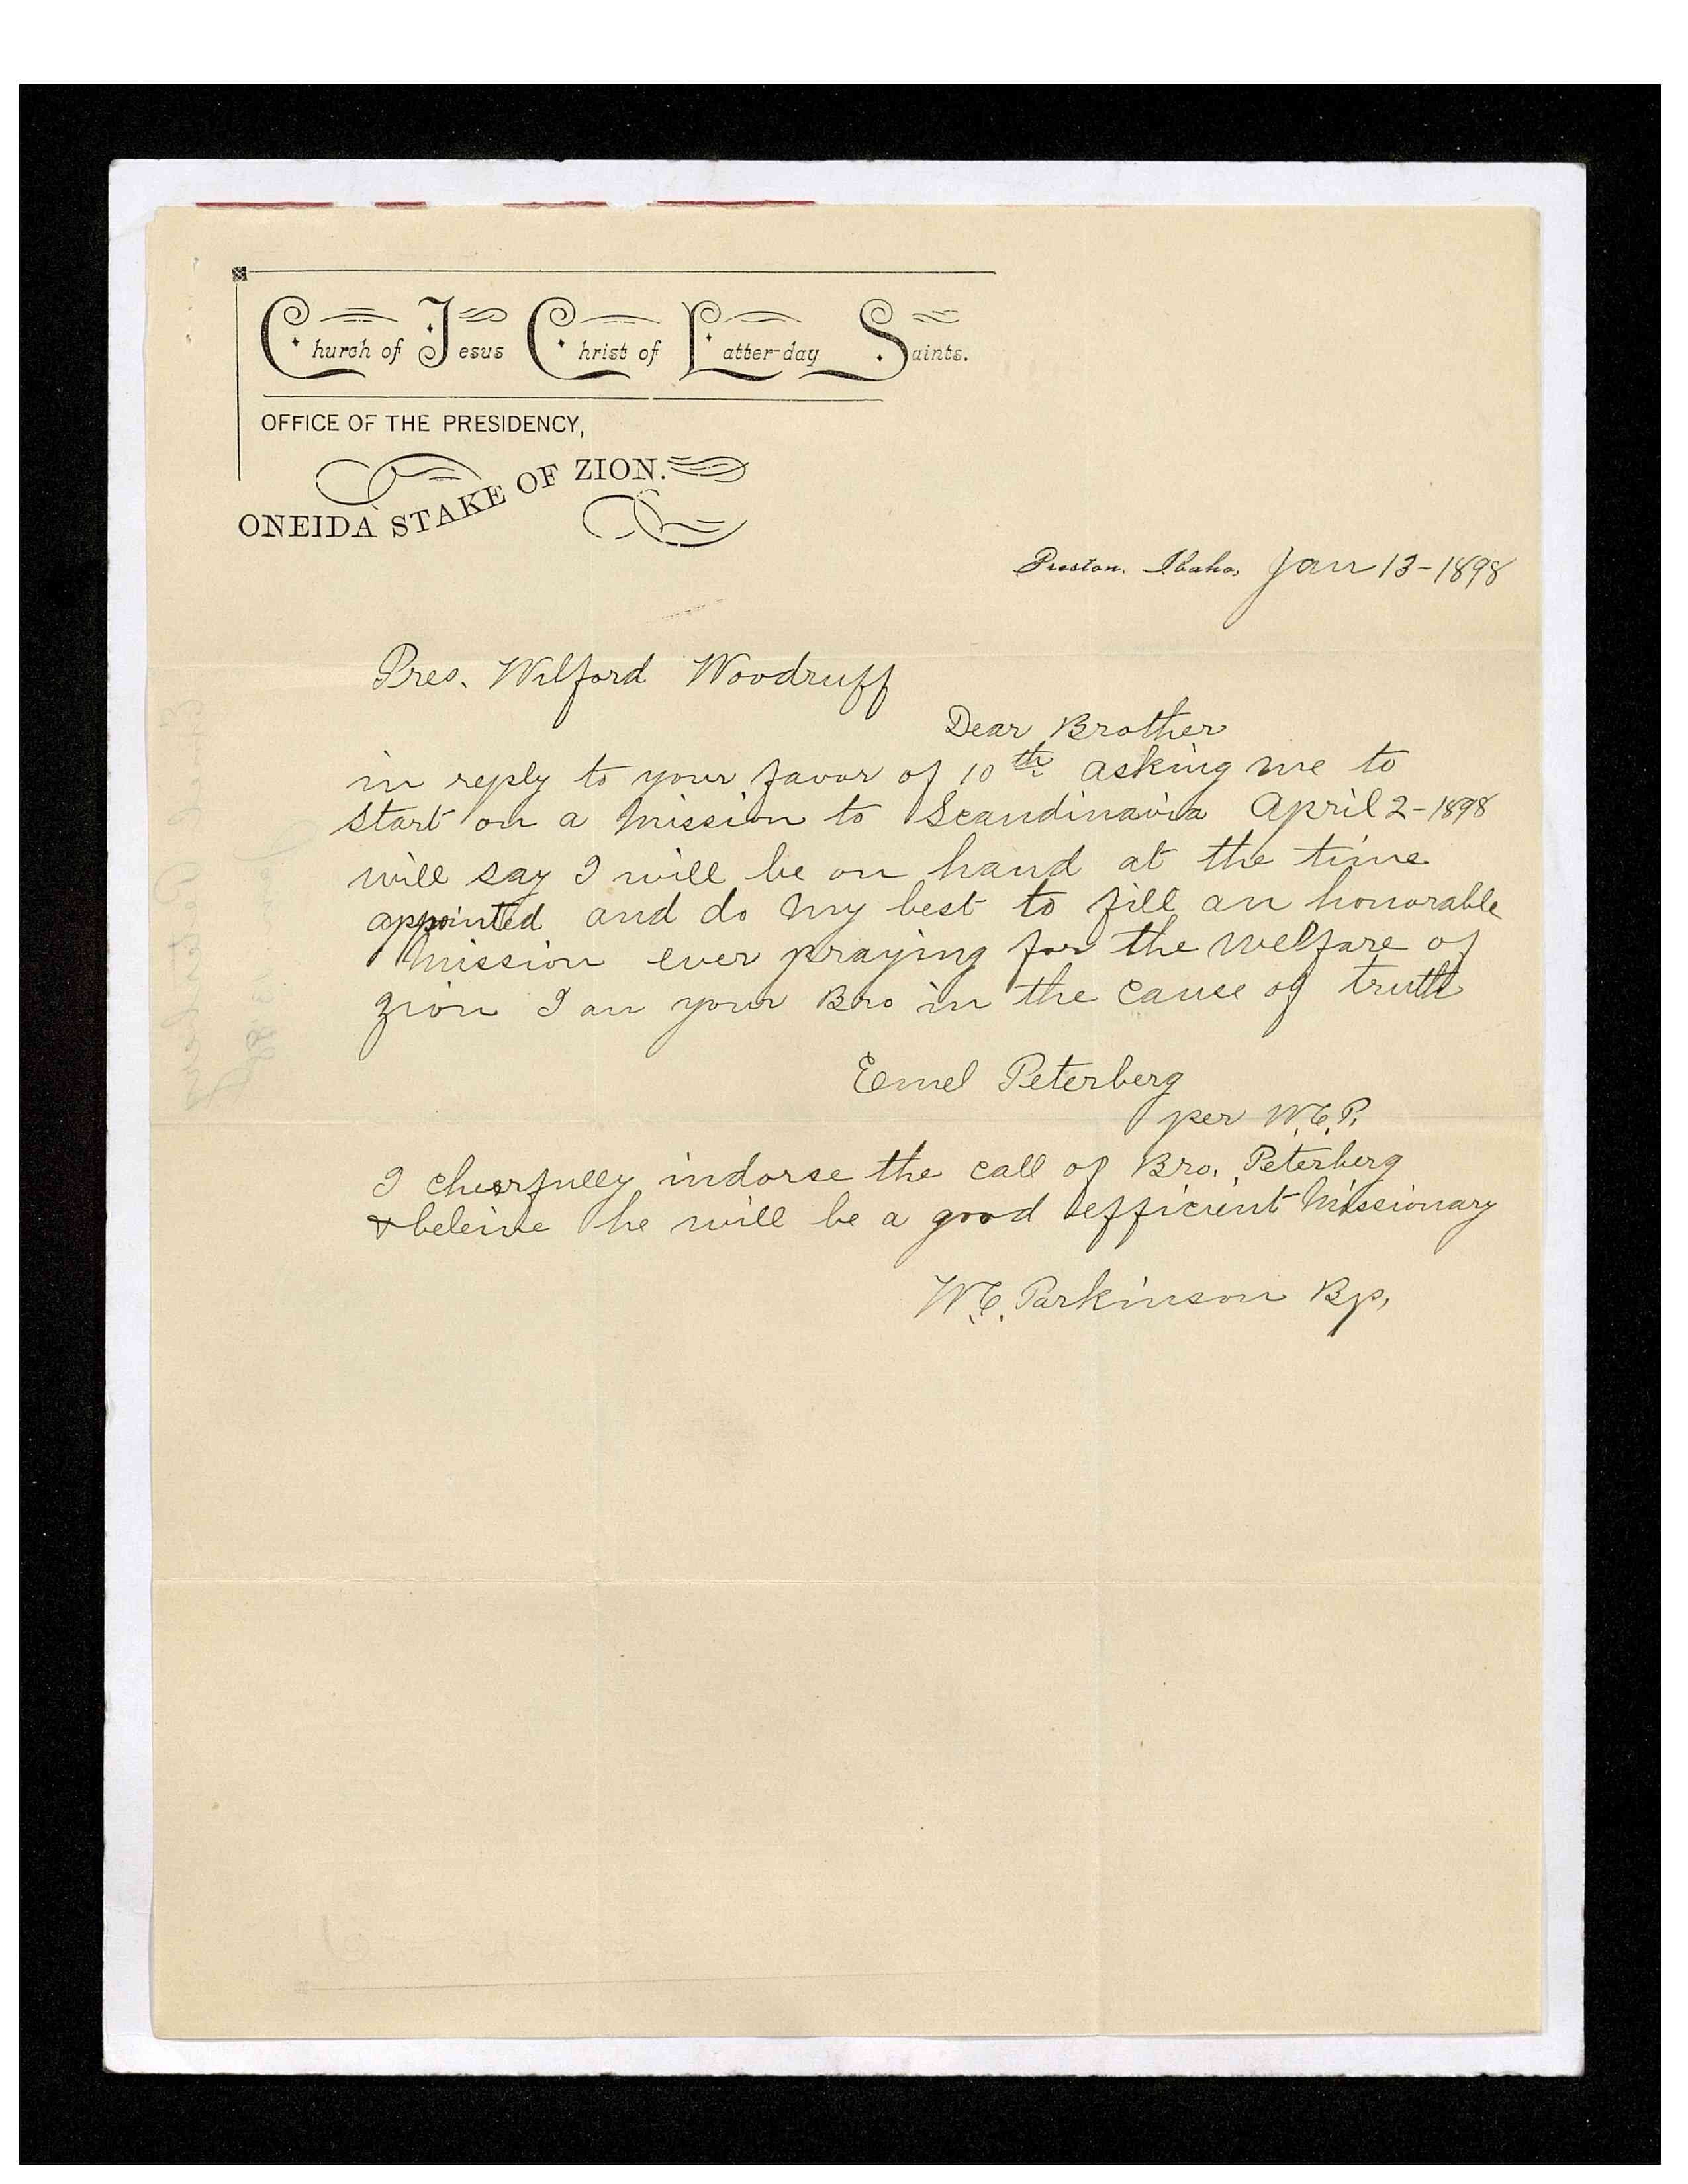 Church of Jesus Christ of Latter-day Saints.
OFFICE OF THE PRESIDENCY,
ONEIDA STAKE OF ZION.
Preston, Idaho, Jan 13-1898
Pres. Wilford Woodruff
Dear Brother
in reply to your favor of 10th asking me to
start on a mission to Scandinavia April 2-1898
will say I will be on hand at the time
appointed and do my best to fill an honorable
mission ever praying for the welfare of
zion I am your Bro in the cause of truth
Eemel Peterberg
per W.C.P.
I cheerfully indorse the call of Bro. Peterberg
& beleive he will be a good efficient Missionary
W.C. Parkinson Bp,